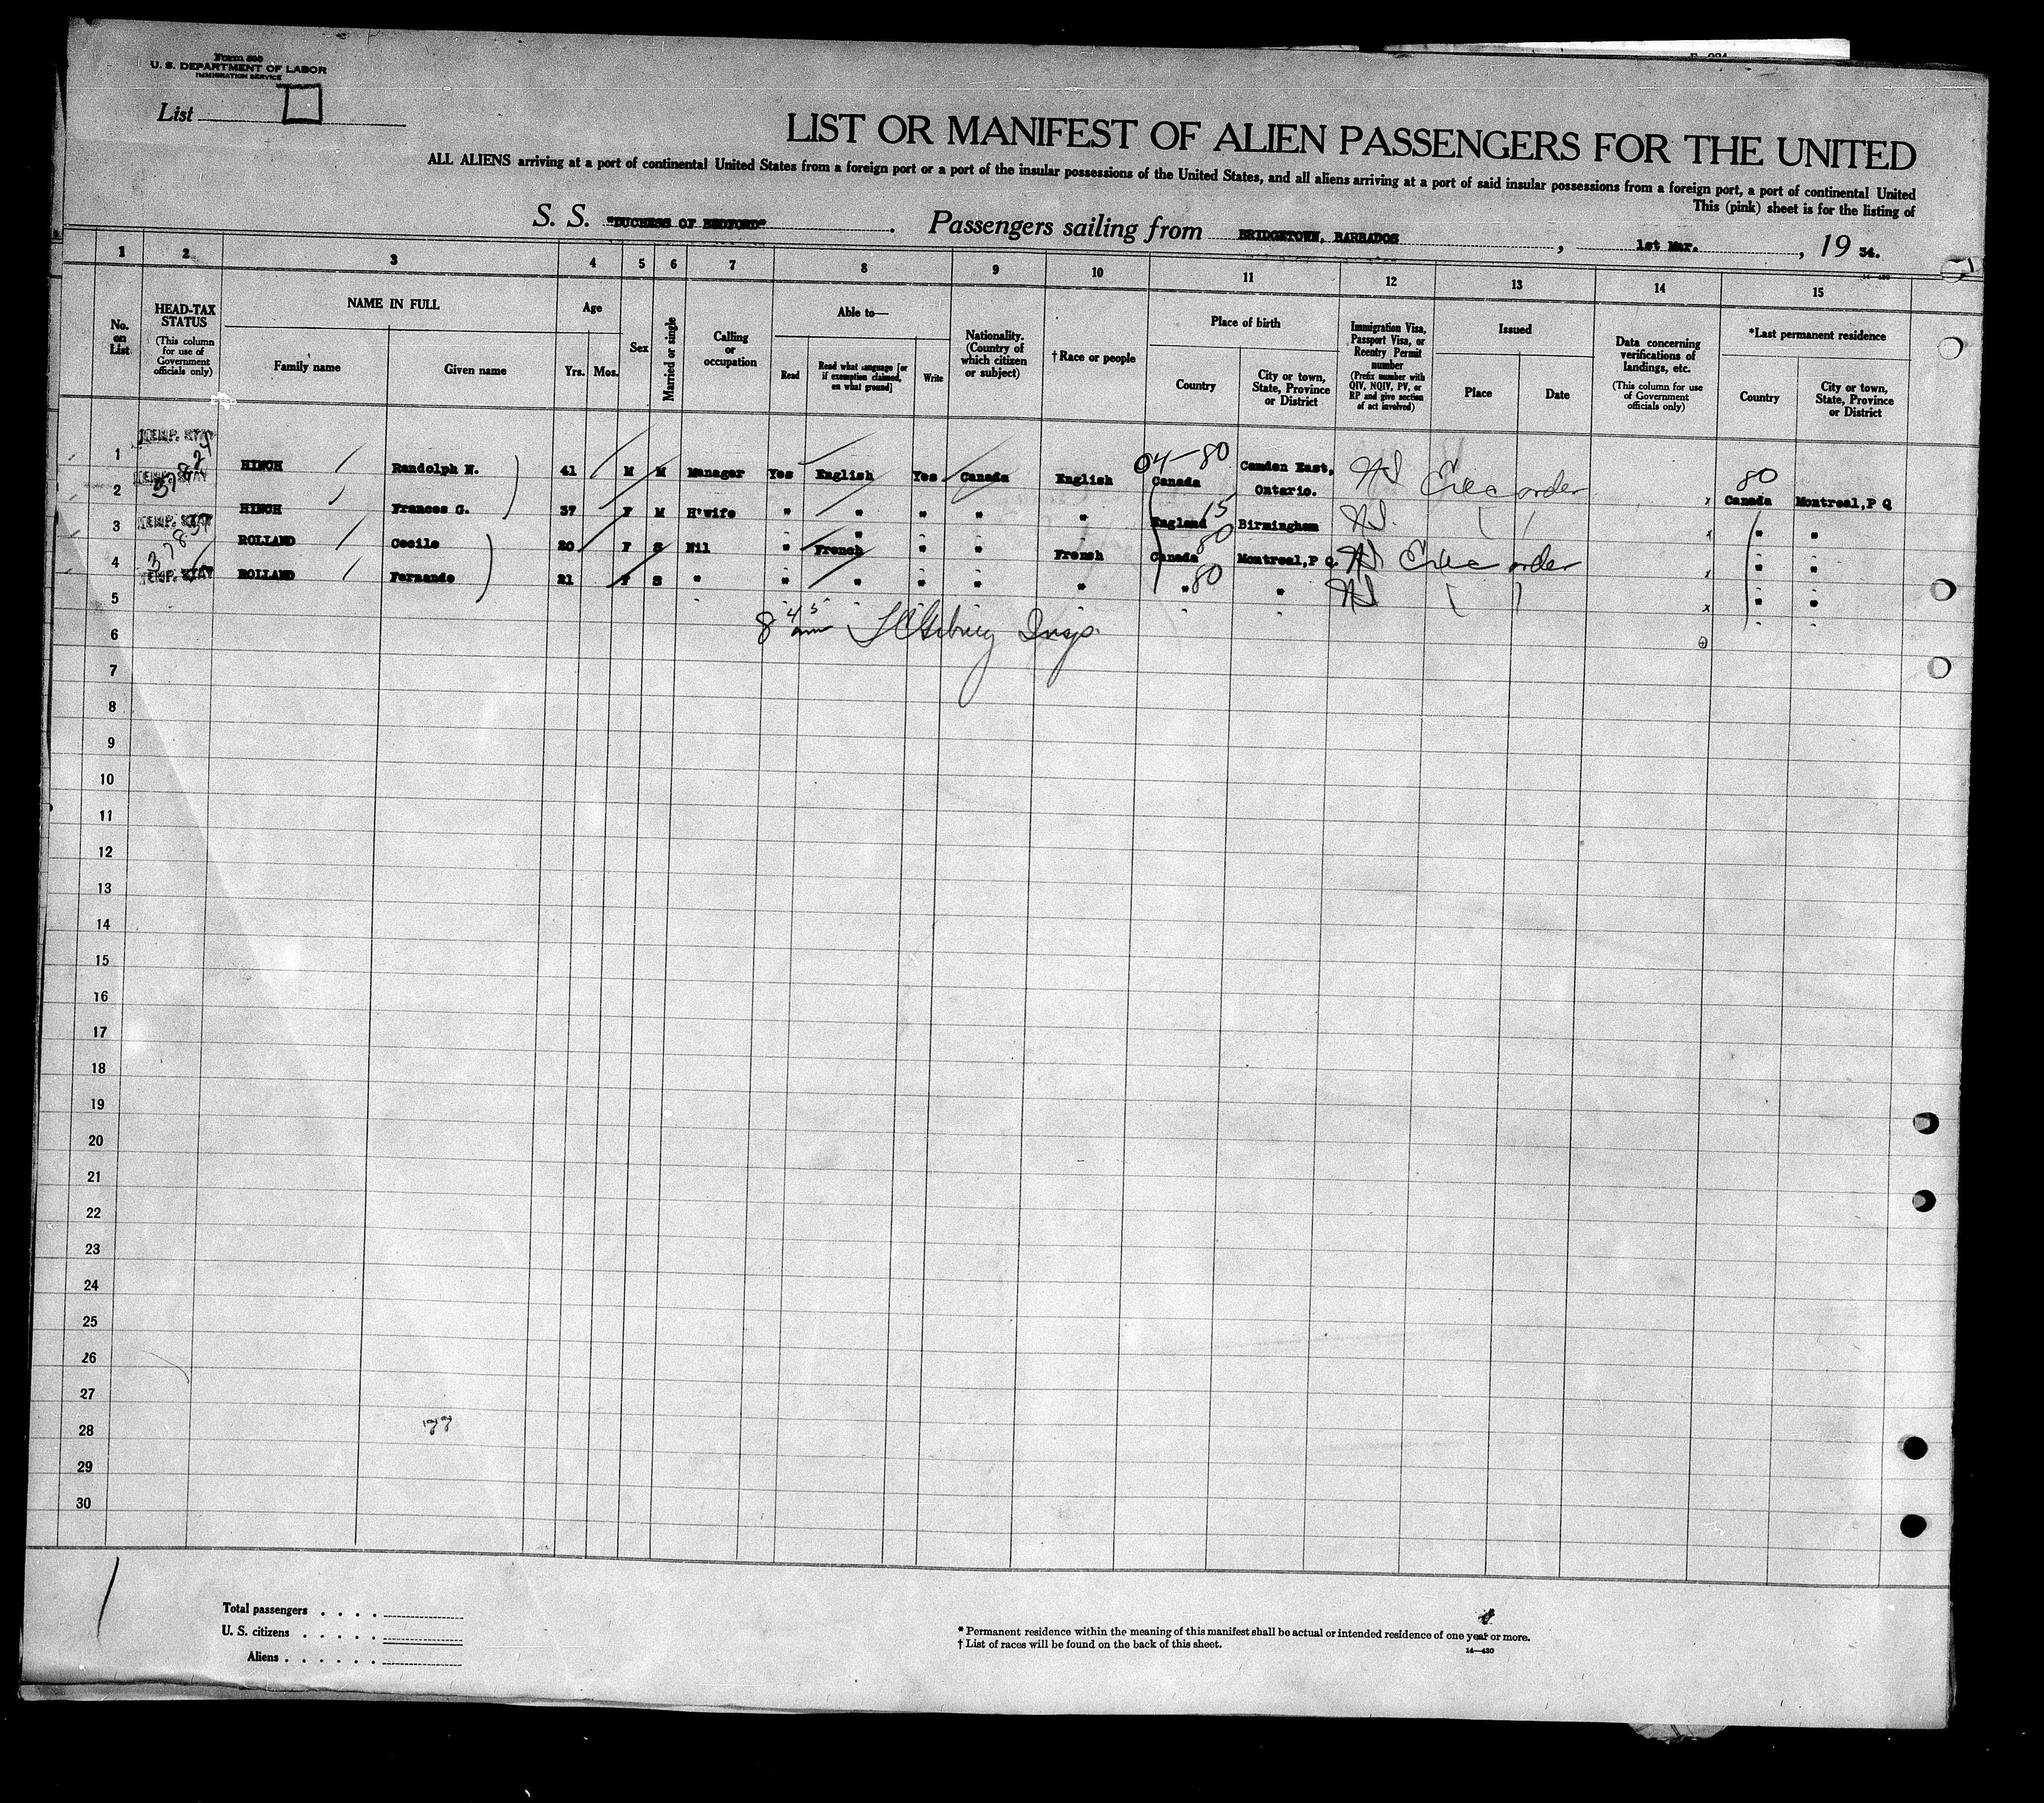 Form 500
U. S. DEPARTMENT OF LABOR
IMMIGRATION SERVICE
List
LIST OR MANIFEST OF ALIEN PASSENGERS FOR THE UNITED
ALL ALIENS arriving at a port of continental United States from a foreign port or a port of the insular possessions of the United States, and all aliens arriving at a port of said insular possessions from a foreign port, a port of continental United
This (pink) sheet is for the listing of
S. S. "DUCHESS OF BEDFORD". Passengers sailing from BRIDGETOWN, BARBADOS, 1st Mar., 19 34.
1 2 3 4 5 6 7 8 9 10 11 12 13 14 15
No. on List
HEAD-TAX STATUS
(This column for use of Government officials only)
NAME IN FULL
Family name
Given name
Age
Yrs. Mos.
Sex
Married or single
Calling or occupation
Able to—
Read
Read what language [or if exemption claimed, on what ground]
Write
Nationality. (Country of which citizen or subject)
†Race or people
Place of birth
Country
City or town, State, Province or District
Immigration Visa, Passport Visa, or Reentry Permit number
(Prefix number with QIV, NQIV, PV, or RP and give section of act involved)
Issued
Place
Date
Data concerning verifications of landings, etc.
(This column for use of Government officials only)
*Last permanent residence
Country
City or town, State, Province or District
1 TEMP. STAY HINCH Randolph N. 41 M M Manager Yes English Yes Canada English 04-80 Canada Camden East, Ontario. order 80 Canada Montreal,P Q
2 TEMP. STAY HINCH Frances G. 37 F M H'wife " " " " " 15 England Birmingham x " "
3 TEMP. STAY ROLLAND Cecile 20 F S Nil " French " " French 80 Canada Montreal,P Q. order x " "
4 TEMP. STAY ROLLAND Fernande 21 F S " " " " " " " 80 " x " "
5
6 8 45 am Insp.
7
8
9
10
11
12
13
14
15
16
17
18
19
20
21
22
23
24
25
26
27
28 77
29
30
Total passengers . . . .
U. S. citizens . . . . .
Aliens . . . . . .
* Permanent residence within the meaning of this manifest shall be actual or intended residence of one year or more.
† List of races will be found on the back of this sheet.
14—430